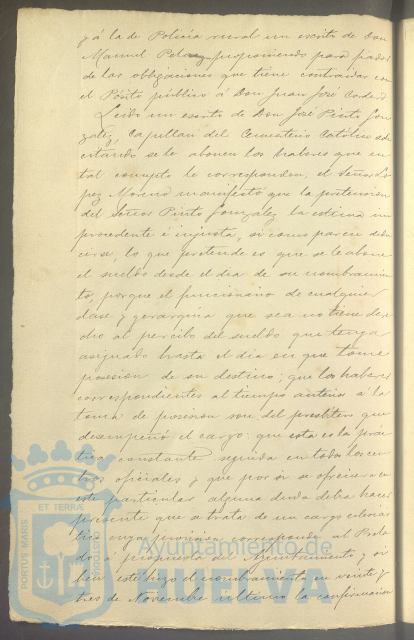 y á la de Policía rural un escrito de Don
Manuel Pelaez proponiendo para fiador
de las obligaciones que tiene contraidas con
el Pósito público á Don Juan José
Leido un escrito de Don José Pinto Gon
zalez, Capellan del Cementerio Católico so
licitando se le abonen los haberes que en
tal concepto le corresponden, el Señor Lo
pez Moreno manifestó que la pretension
del Señor Pinto Gonzalez la estima im
procedente é injusta, si como parece dedu
cirse, lo que pretende es que se le abone
el sueldo desde el dia de su nombramien
to, porque el funcionario de cualquier
clase y gerarquia que sea no tiene dere
cho al percibo del sueldo que tenga
asignado hasta el dia en que tome
posesion de su destino; que los haberes
correspondientes al tiempo anterior á la
toma de posesion son del presbitero que
desempeñó el cargo: que esta es la prác
tica constante seguida en todos los cen
tros oficiales y que por si se ofreciera en
este particular alguna duda debia hacer
presente que se trata de un cargo eclesiás
tico cuya provision corresponde al Prela
do á propuesta del Ayuntamiento, y si
bien este hizo el nombramiento en veinte y
tres de Noviembre último la confirmacion
PORTUS MARIS
ET TERRÆ
CUSTODIA
Ayuntamiento de
HUELVA